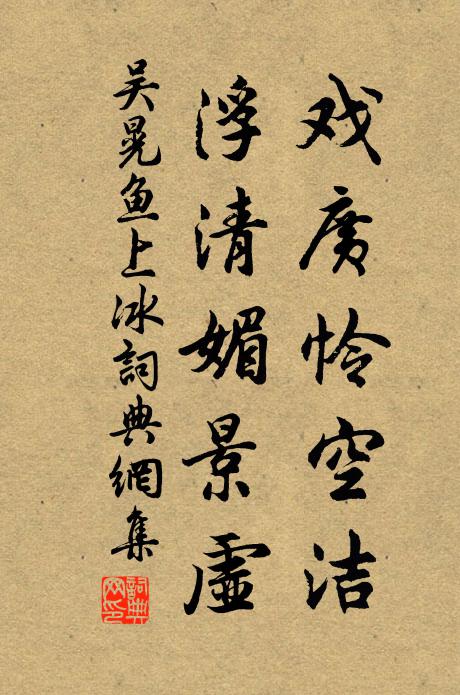 戏广怜空洁
浮清媚景虚
吴晃鱼上冰词典網集
詞典網印